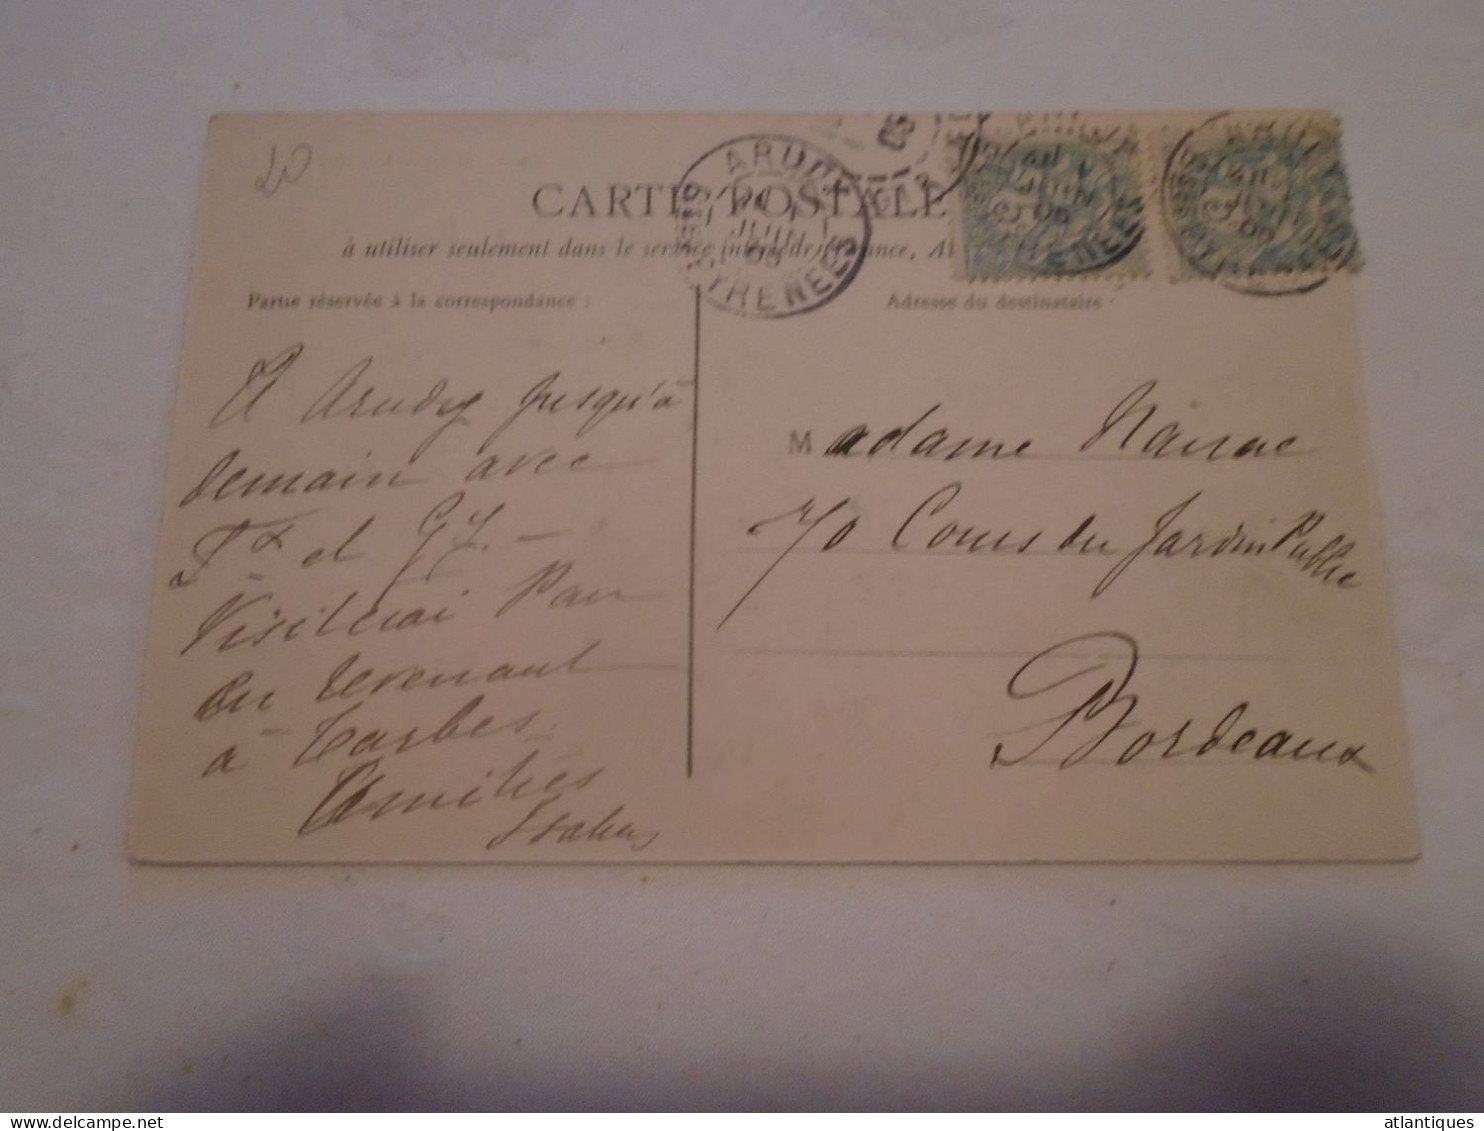 20
CARTE POSTALE
à utiliser seulement dans le service intérieur, France,
Partie réservée à la correspondance :
Adresse du destinataire
ARUDY
JUIN
05
PYRENEES
A Arudy jusqu'à
demain avec
et GJ. —
Visiterai Pau
en revenant
à Tarbes
Amitiés
Madame Nairac
70 Cours du Jardin Public
Bordeaux
atlantiques